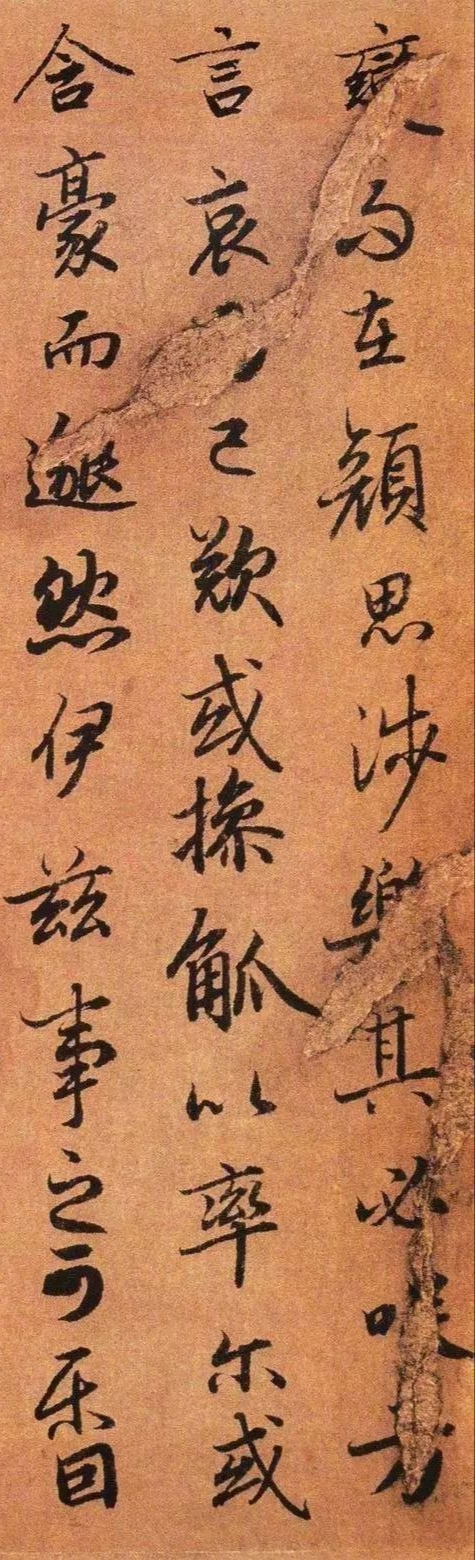 變而在顔思涉樂其必咲方
言哀已歎或操觚以率尔或
含豪而邈然伊茲事之可樂固